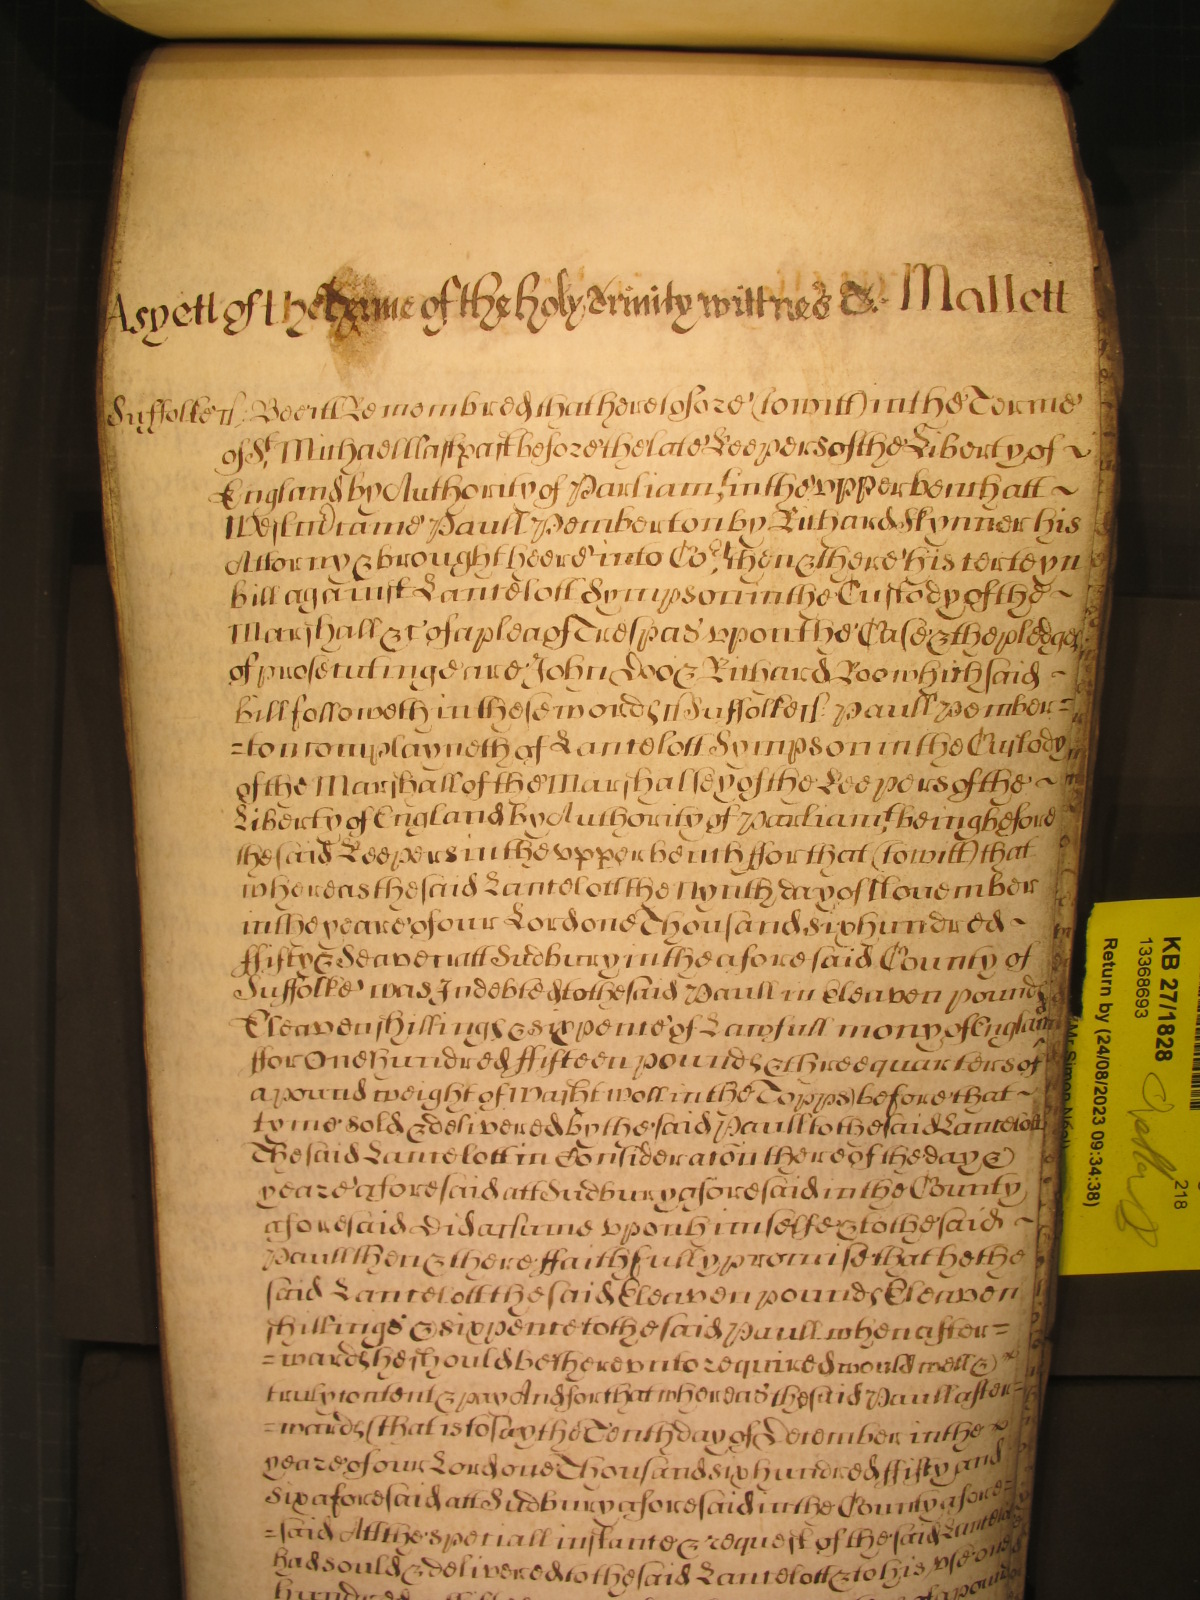 As yett of the Terme of the holy Trinity wittnes &c. Mallett
Suffolke ss. Bee itt Remembred that heretofore (to witt) in the Terme
of St. Michaell last past before the late Keepers of the Liberty of ~
England by Authority of Parliamt. in the upper bench att ~
Westm came Paull Pemberton by Richard Skynner his
Attorny & brought heere into Cort. then & there his certeyn
bill against Lancelott Sympson in the Custody of the ~
Marshall &c of a plea of Trespas upon the Case & the pledges
of prosecutinge are John Doo & Richard Roo which said ~
bill followeth in these words ss Suffolke ss. Paull Pember=
=ton complayneth of Lancelott Sympson in the Custody
of the Marshall of the Marshalsey of the Keepers of the ~
Liberty of England by Authority of Parliamt. being before
the said Keepers in the upper bench ffor that (to witt) that
whereas the said Lancelott the Nynth day of November
in the yeare of our Lord one Thousand six hundred ~
ffifty & Seaven att Sudbury in the aforesaid County of
Suffolke was Indebted to the said Paull in Eleaven pounds
Eleaven shillings & sixpence of Lawfull mony of England
ffor One hundred ffifteen pounds & three quarters of
a pound weight of Waight woll in the Topps before that ~
tyme sold & delivered by the said Paull to the said Lancelott
The said Lancelott in Consideracion thereof the day &
yeare aforesaid att Sudbury aforesaid in the County
aforesaid Did assume upon himselfe & to the said ~
Paull then & there ffaithfully promise that he the
said Lancelott the said Eleaven pounds Eleaven
shillings & sixpence to the said Paull when after=
=wards he should be thereunto required would well &
truly content & pay And for that whereas the said Paull after=
=wards (that is to say the Tenth day of December in the ~
yeare of our Lord one Thousand six hundred ffifty and
six aforesaid att Sudbury aforesaid in the County afore=
=said Att the speciall instance & request of the said Lancelott
had sould & delivered to the said Lancelott & to his use one
hundred of a pound
KB 27/1828
13368693
218
Return by (24/08/2023 09:34:38)